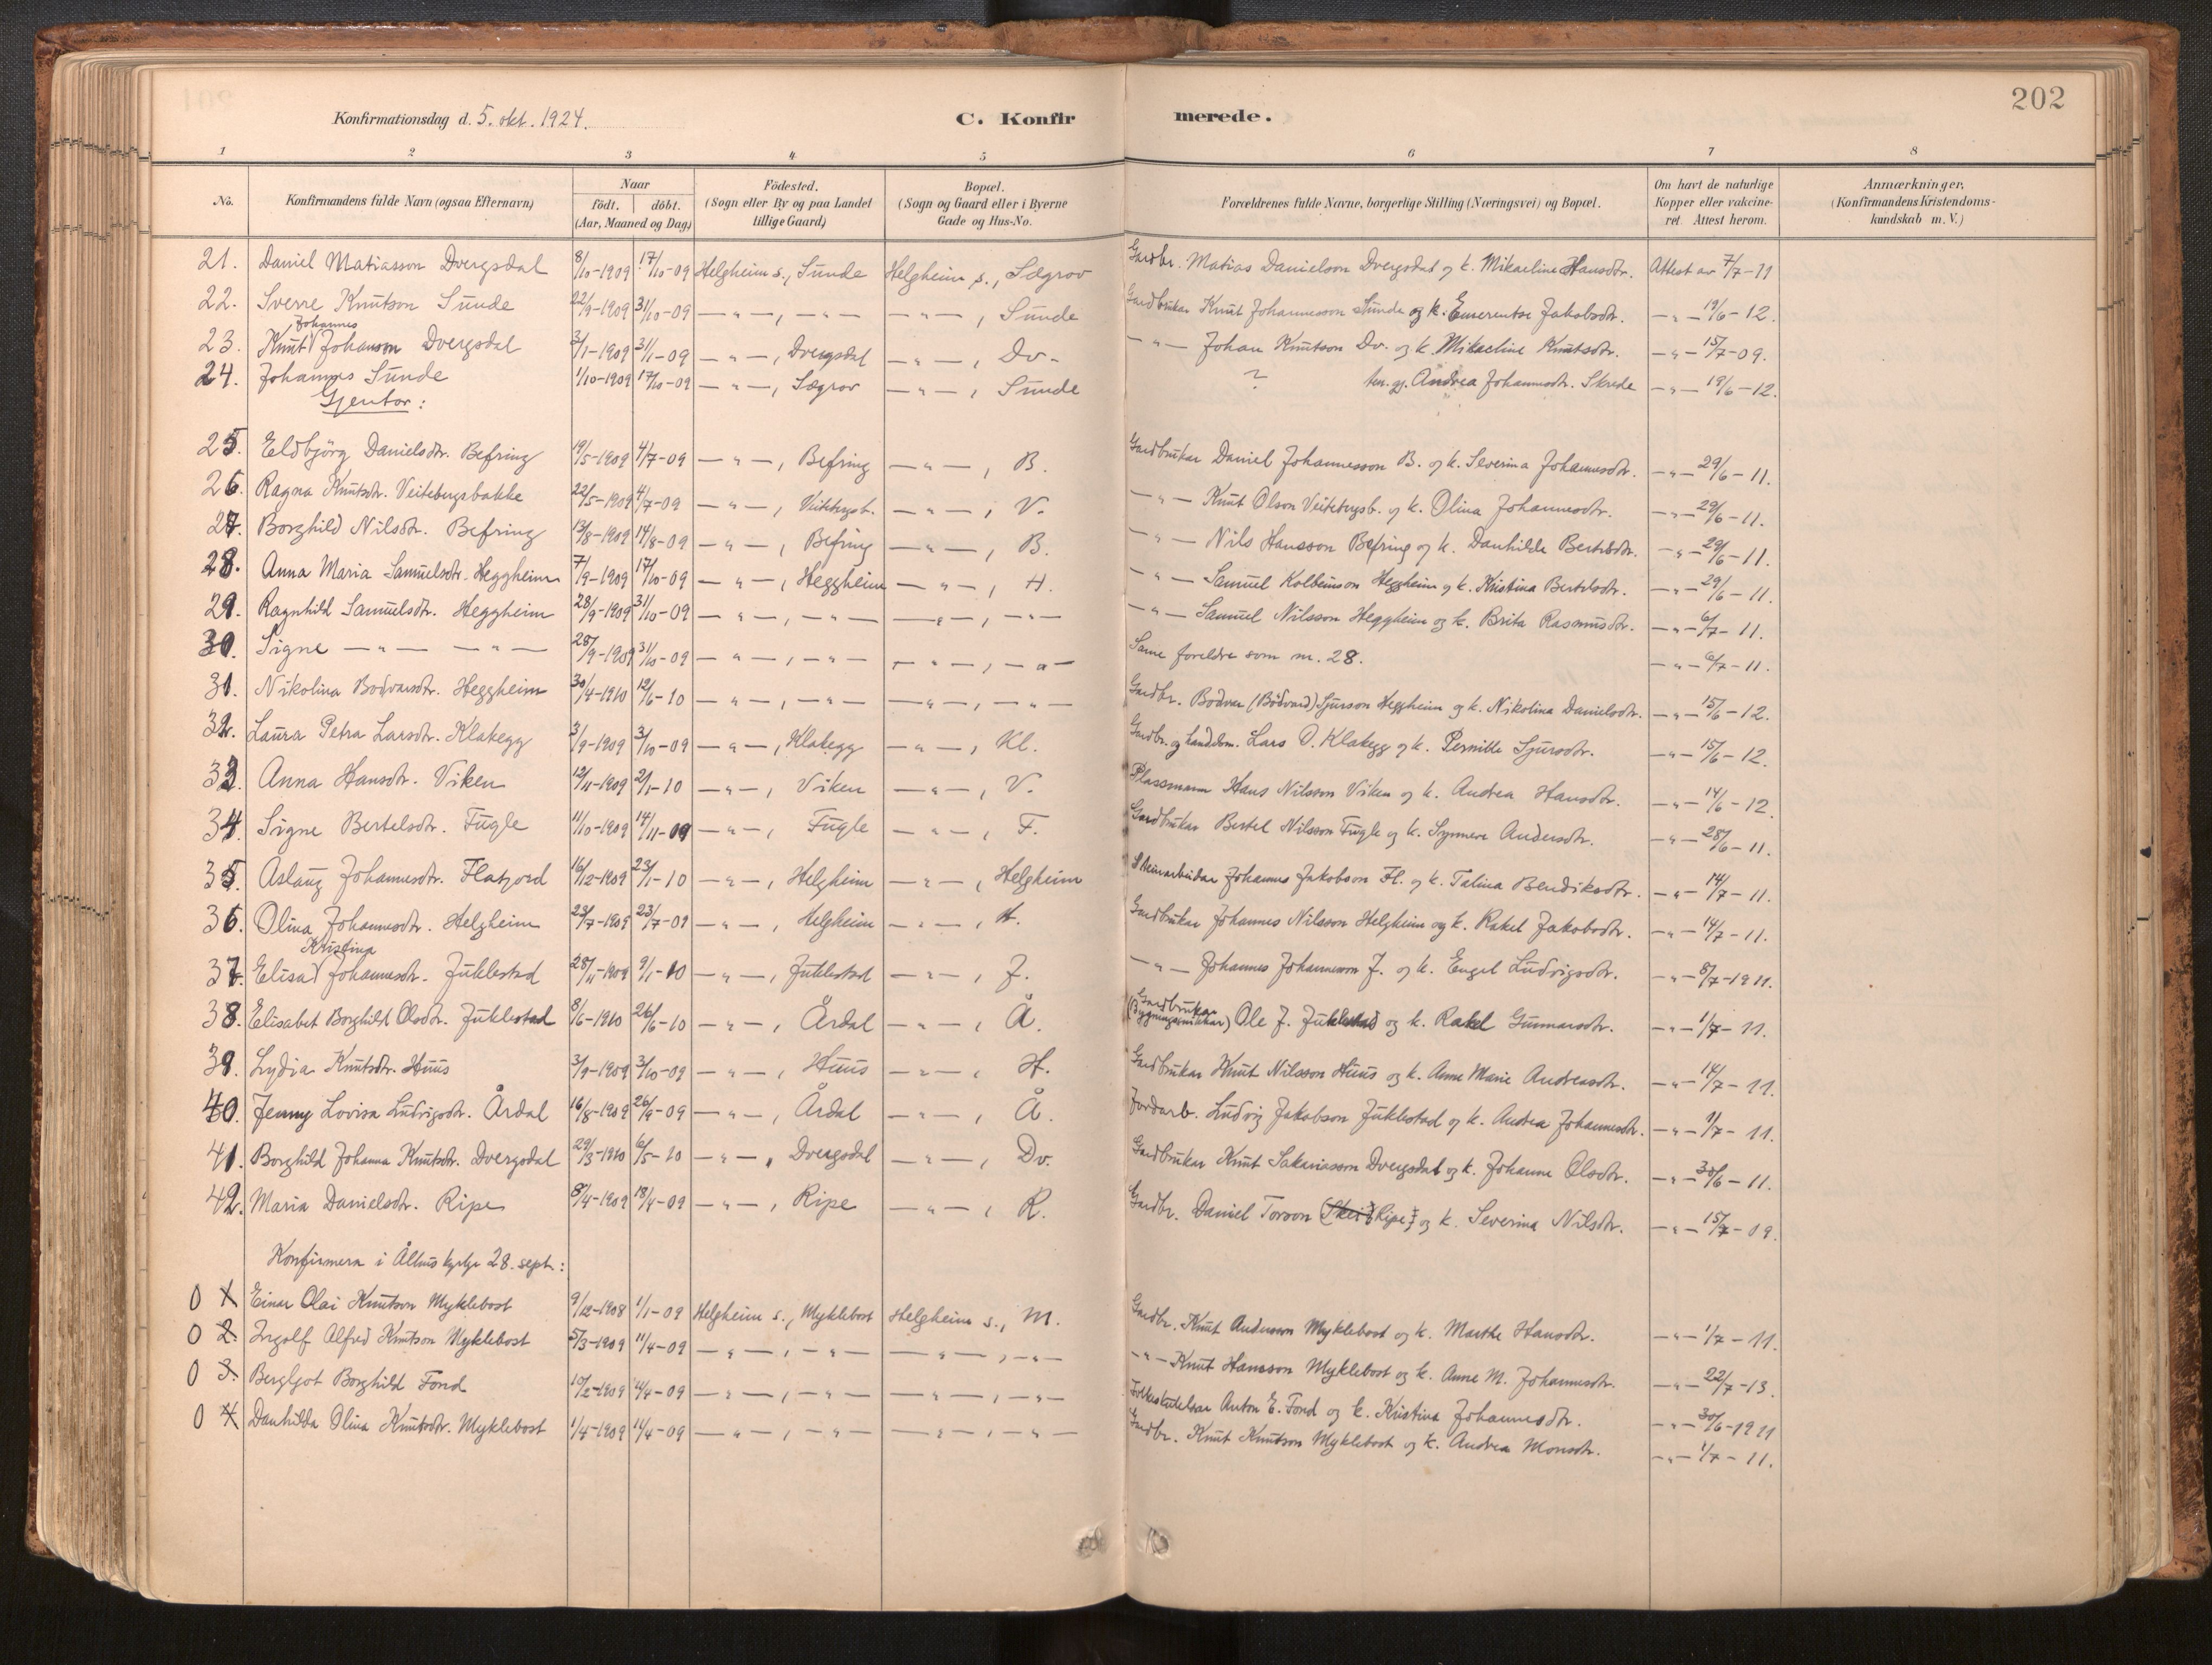 202
Konfirmationsdag d. 5. okt. 1924.
C. Konfirmerede.
1 2 3 4 5 6 7 8
No. Konfirmandens fulde Navn (ogsaa Efternavn) Naar født. døbt. (Aar, Maaned og Dag) Fødested. (Sogn eller By og paa Landet tillige Gaard) Bopæl. (Sogn og Gaard eller i Byerne Gade og Hus-No. Forældrenes fulde Navne, borgerlige Stilling (Næringsvei) og Bopæl. Om havt de naturlige Kopper eller vakcineret. Attest herom. Anmærkninger, (Konfirmandens Kristendomskundskab m. V.)
21. Daniel Matiasson Dvergsdal 8/10-1909 17/10-09 Helgheim s., Sunde Helgheim s., Sægrov Gardbr. Matias Danielson Dvergsdal og k. Mikaeline Hansdtr. Attest av 7/7-11
22. Sverre Knutson Sunde 22/9-1909 31/10-09 —"—, —"— —"—, Sunde Gardbrukar Knut Johannesson Sunde og k. Emerentse Jakobsdtr. —"— 19/6-12.
23. Knut Johannes Johanson Dvergsdal 3/1-1909 31/1-09 —"—, Dvergsdal —"—, Dv. —"— Johan Knutson Dv. og k. Mikaeline Knutsdtr. —"— 15/7-09.
24. Johannes Sunde 1/10-1909 17/10-09 —"—, Sægrov —"—, Sunde ? Andrea Johannesdtr. Skrede —"— 19/6-12.
Gjentor:
25. Eldbjörg Danielsdtr. Befring 19/5-1909 4/7-09 —"—, Befring —"—, B. Gardbrukar Daniel Johannesson B. og k. Severina Johannesdtr. —"— 29/6-11.
26. Ragna Knutsdtr. Veitebergsbakke 22/5-1909 4/7-09 —"—, Veitebergsb. —"—, V. —"— Knut Olson Veitebergsb. og k. Olina Johannesdtr. —"— 29/6-11.
27. Borghild Nilsdtr. Befring 13/8-1909 14/8-09 —"—, Befring —"—, B. —"— Nils Hansson Befring og k. Danhilde Bertelsdtr. —"— 29/6-11.
28. Anna Maria Samuelsdtr. Heggheim 7/9-1909 17/10-09 —"—, Heggheim —"—, H. —"— Samuel Kolbeinson Heggheim og k. Kristina Bertelsdtr. —"— 29/6-11.
29. Ragnhild Samuelsdtr. Heggheim 28/9-1909 31/10-09 —"—, —"— —"—, —"— —"— Samuel Nilsson Heggheim og k. Brita Rasmusdtr. —"— 6/7-11.
30. Signe —"— —"— 28/9-1909 31/10-09 —"—, —"— —"—, —"— Same foreldre som nr. 28. —"— 6/7-11.
31. Nikolina Bodvarsdtr. Heggheim 30/4-1910 12/6-10 —"—, —"— —"—, —"— Gardbr. Bodvar (Bödvard) Sjurson Heggheim og k. Nikolina Danielsdtr. —"— 15/6-12.
32. Laura Petra Larsdtr. Klakegg 3/9-1909 3/10-09 —"—, Klakegg —"—, Kl. Gardbr. og handelsm. Lars O. Klakegg og k. Pernille Sjursdtr. —"— 15/6-12.
33. Anna Hansdtr. Viken 12/11-1909 2/1-10 —"—, Viken —"—, V. Plassmann Hans Nilsson Viken og k. Andrea Hansdtr. —"— 14/6-12.
34. Signe Bertelsdtr. Fugle 11/10-1909 14/11-09 —"—, Fugle —"—, F. Gardbrukar Bertel Nilsson Fugle og k. Synneve Andersdtr. —"— 28/6-11.
35. Aslaug Johannesdtr. Flatjord 16/12-1909 23/1-10 —"—, Helgheim —"—, Helgheim Steinarbeidar Johannes Jakobson Fl. og k. Talina Bendiksdtr. —"— 14/7-11.
36. Olina Johannesdtr. Helgheim 23/7-1909 23/7-09 —"—, Helgheim —"—, H. Gardbrukar Johannes Nilsson Helgheim og k. Rakel Jakobsdtr. —"— 14/7-11.
37. Elisa Kristina Johannesdtr. Juklestad 28/11-1909 9/1-10 —"—, Juklestad —"—, J. —"— Johannes Johannesson J. og k. Engel Ludvigsdtr. —"— 8/7-1911.
38. Elisabet Borghild Olsdtr. Juklestad 8/6-1910 26/6-10 —"—, Årdal —"—, Å. Gardbrukar (Bygningssnikkar) Ole J. Juklestad og k. Rakel Gunnarsdtr. —"— 1/7-11.
39. Lydia Knutsdtr. Huus 3/9-1909 3/10-09 —"—, Huus —"—, H. Gardbrukar Knut Nilsson Huus og k. Anne Marie Andreasdtr. —"— 14/7-11.
40. Jenny Lovisa Ludvigsdtr. Årdal 16/8-1909 26/9-09 —"—, Årdal —"—, Å. Jordarb. Ludvig Jakobson Juklestad og k. Andrea Johannesdtr. —"— 1/7-11.
41. Borghild Johanna Knutsdtr. Dvergsdal 29/3-1910 6/5-10 —"—, Dvergsdal —"—, Dv. Gardbrukar Knut Sakariasson Dvergsdal og k. Johanne Olsdtr. —"— 30/6-11.
42. Maria Danielsdtr. Ripe 8/4-1909 18/4-09 —"—, Ripe —"—, R. Gardbr. Daniel Torson (Skei) Ripe og k. Severina Nilsdtr. —"— 15/7-09.
Konfirmera i Ålhus kyrkje 28. sept.:
0 1 Einar Olai Knutson Myklebost 9/12-1908 1/1-09 Helgheim s., Myklebost Helgheim s., M. Gardbr. Knut Anderson Myklebost og k. Marthe Hansdtr. —"— 1/7-11.
0 2. Ingolf Alfred Knutson Myklebost 5/3-1909 11/4-09 —"—, —"— —"—, —"— —"— Knut Hansson Myklebost og k. Anne M. Johannesdtr. —"— 22/7-13.
0 3. Bergljot Borghild Fond 10/2-1909 4/4-09 —"—, —"— —"—, —"— Anton E. Fond og k. Kristina Johannesdtr. —"— 30/6-1911
0 4 Danhilda Olina Knutsdtr. Myklebost 1/4-1909 14/4-09 —"—, —"— —"—, —"— Gardbr. Knut Knutson Myklebost og k. Andrea Monsdtr. —"— 1/7-11.